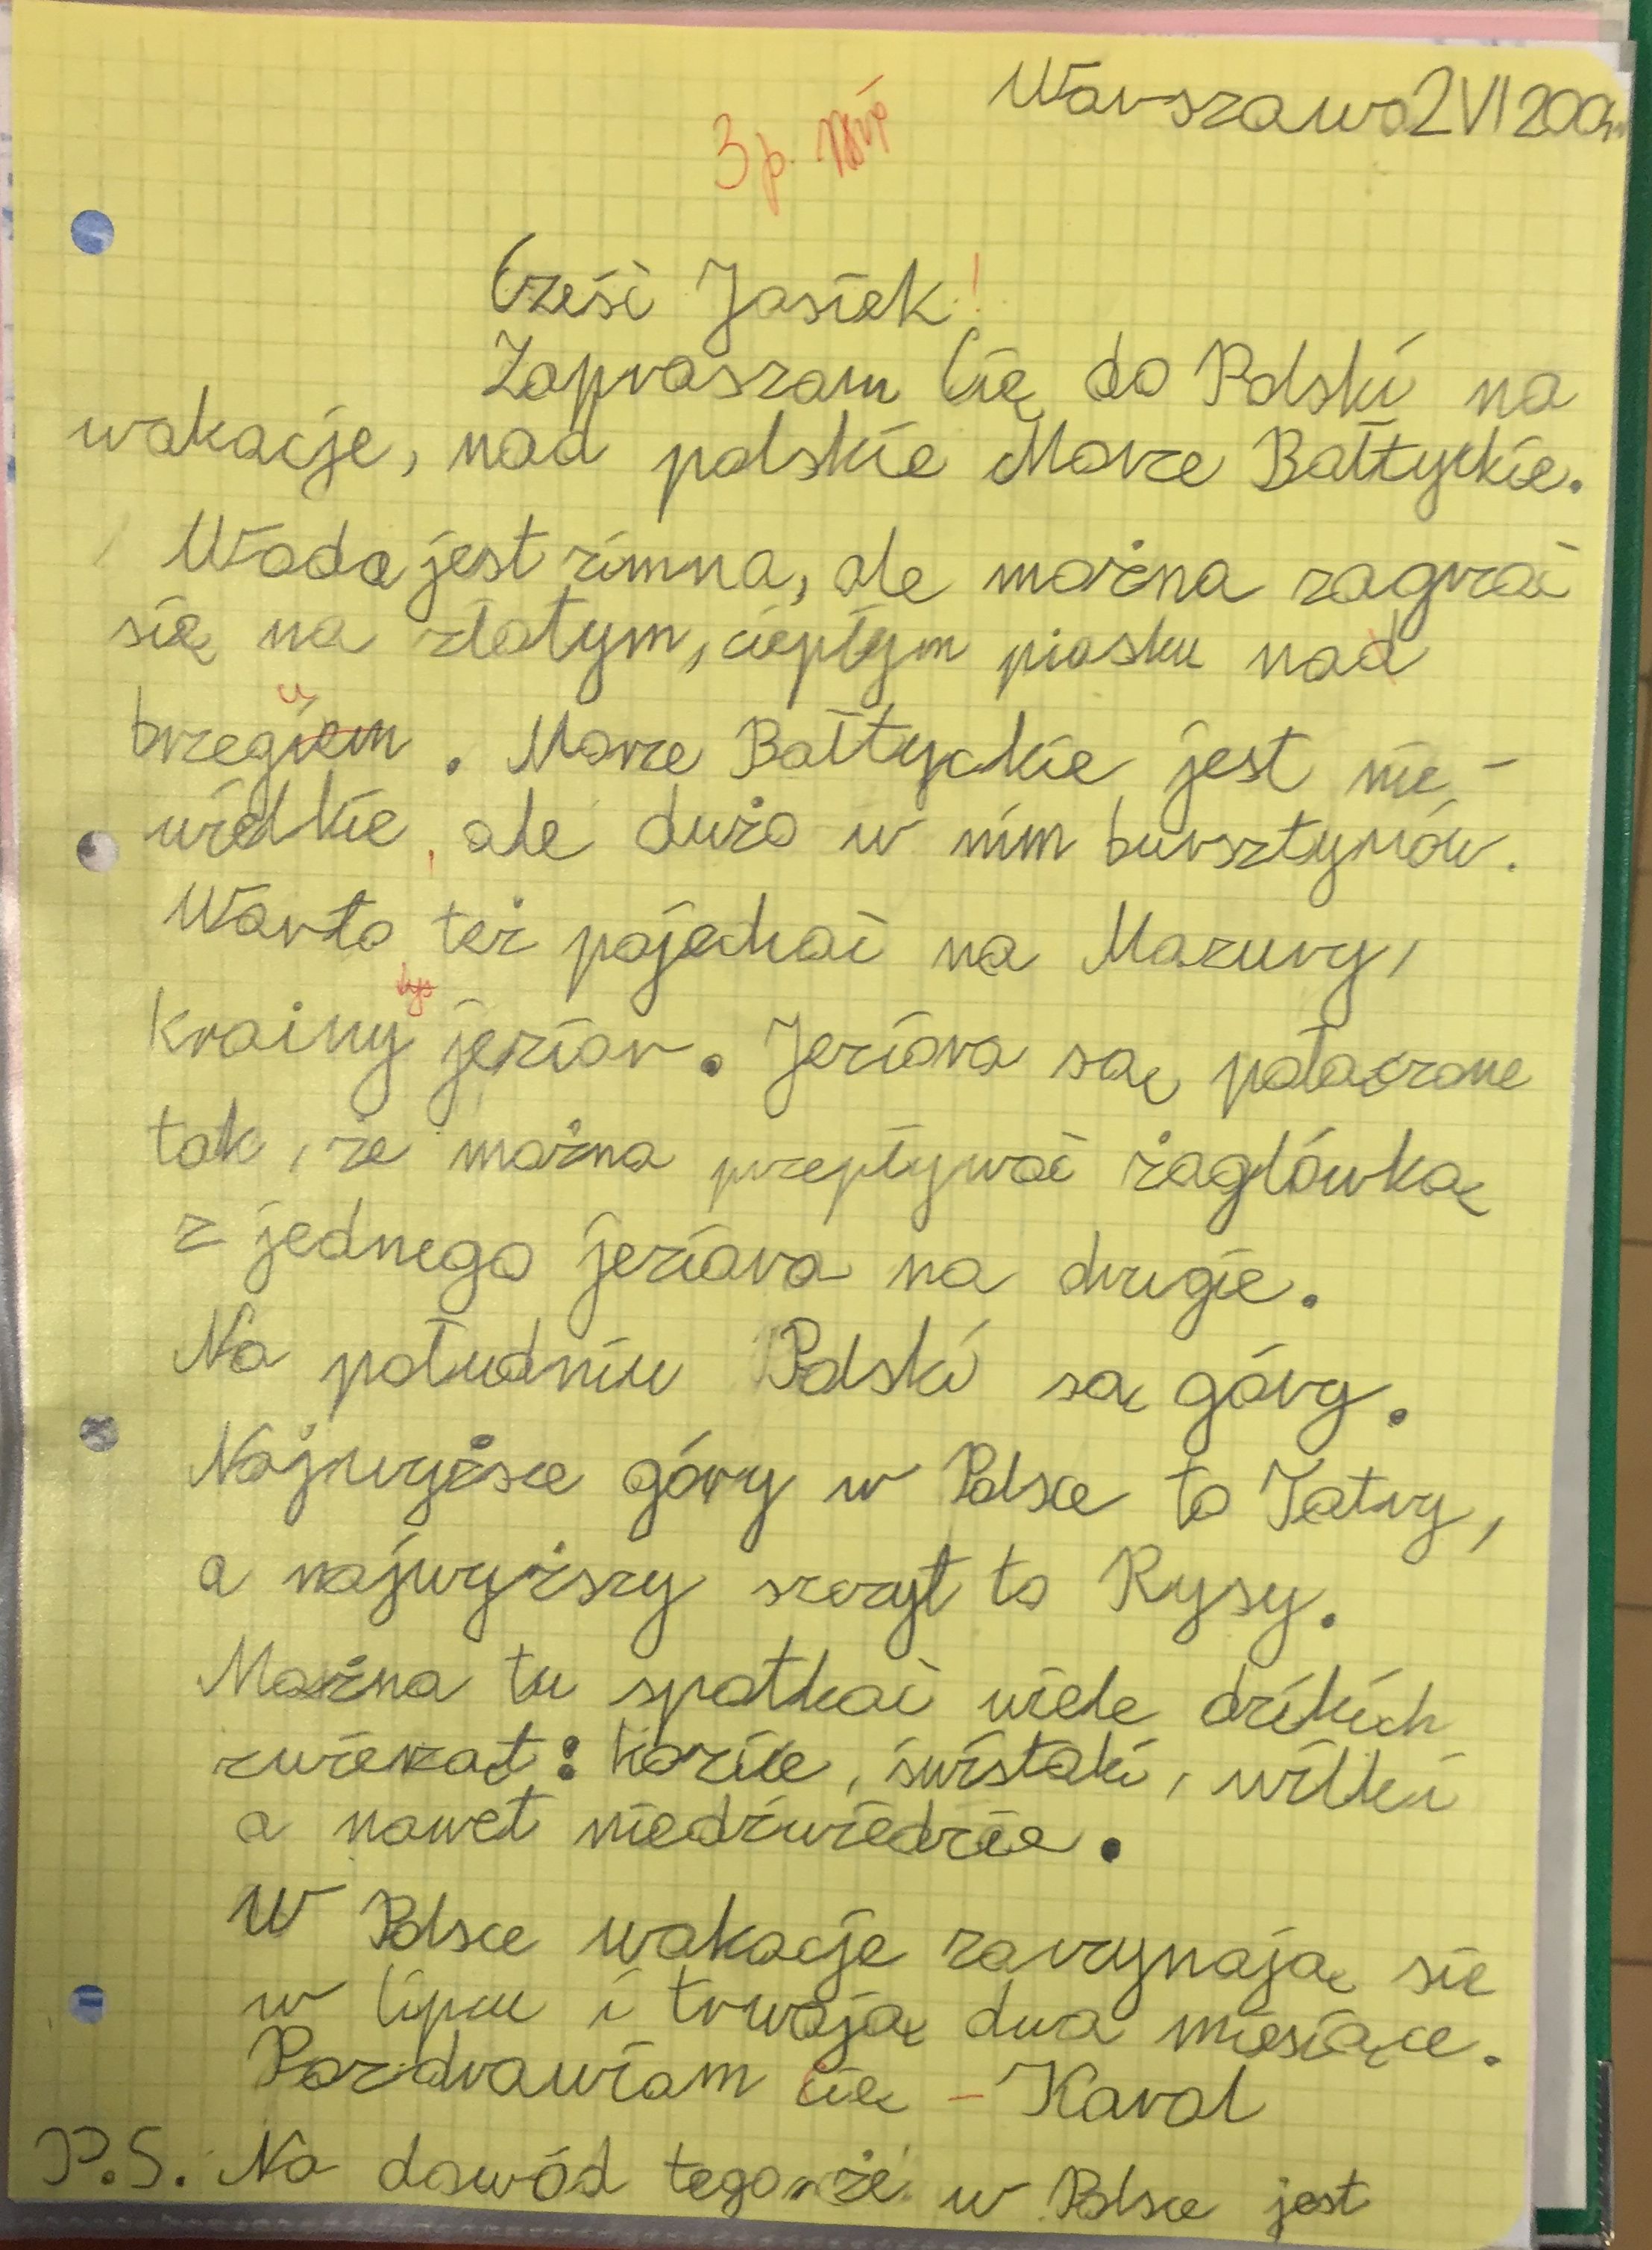 Warszawa 2 VI 200
3 p.
Cześć Jasiek!
Zapraszam Cię do Polski na
wakacje, nad polskie Morze Bałtyckie.
Woda jest zimna, ale można zagrać
się na złotym, ciepłym piasku nad
brzegiem. Morze Bałtyckie jest nie-
wielkie, ale dużo w nim bursztynów.
Warto też pojechać na Mazury,
krainy jezior. Jeziora są połaczone
tak, że można przepływać żaglówką
z jednego jeziora na drugie.
Na południu Polski są góry.
Najwyższe góry w Polsce to Tatry,
a najwyższy szczyt to Rysy.
Można tu spotkać wiele dzikich
zwierząt: kozice, świstaki, wilki
a nawet niedźwiedzie.
W Polsce wakacje zaczynają się
w lipcu i trwają dwa miesiące.
Pozdrawiam cię - Karol
P.S. Na dowód tego, że w Polsce jest